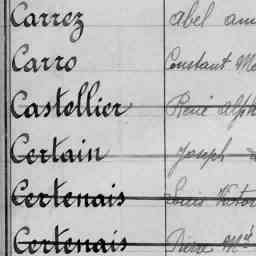 Carrez Abel
Carro Constant
Castellier René
Certain Joseph
Certenais Louis Victor
Certenais Pierre